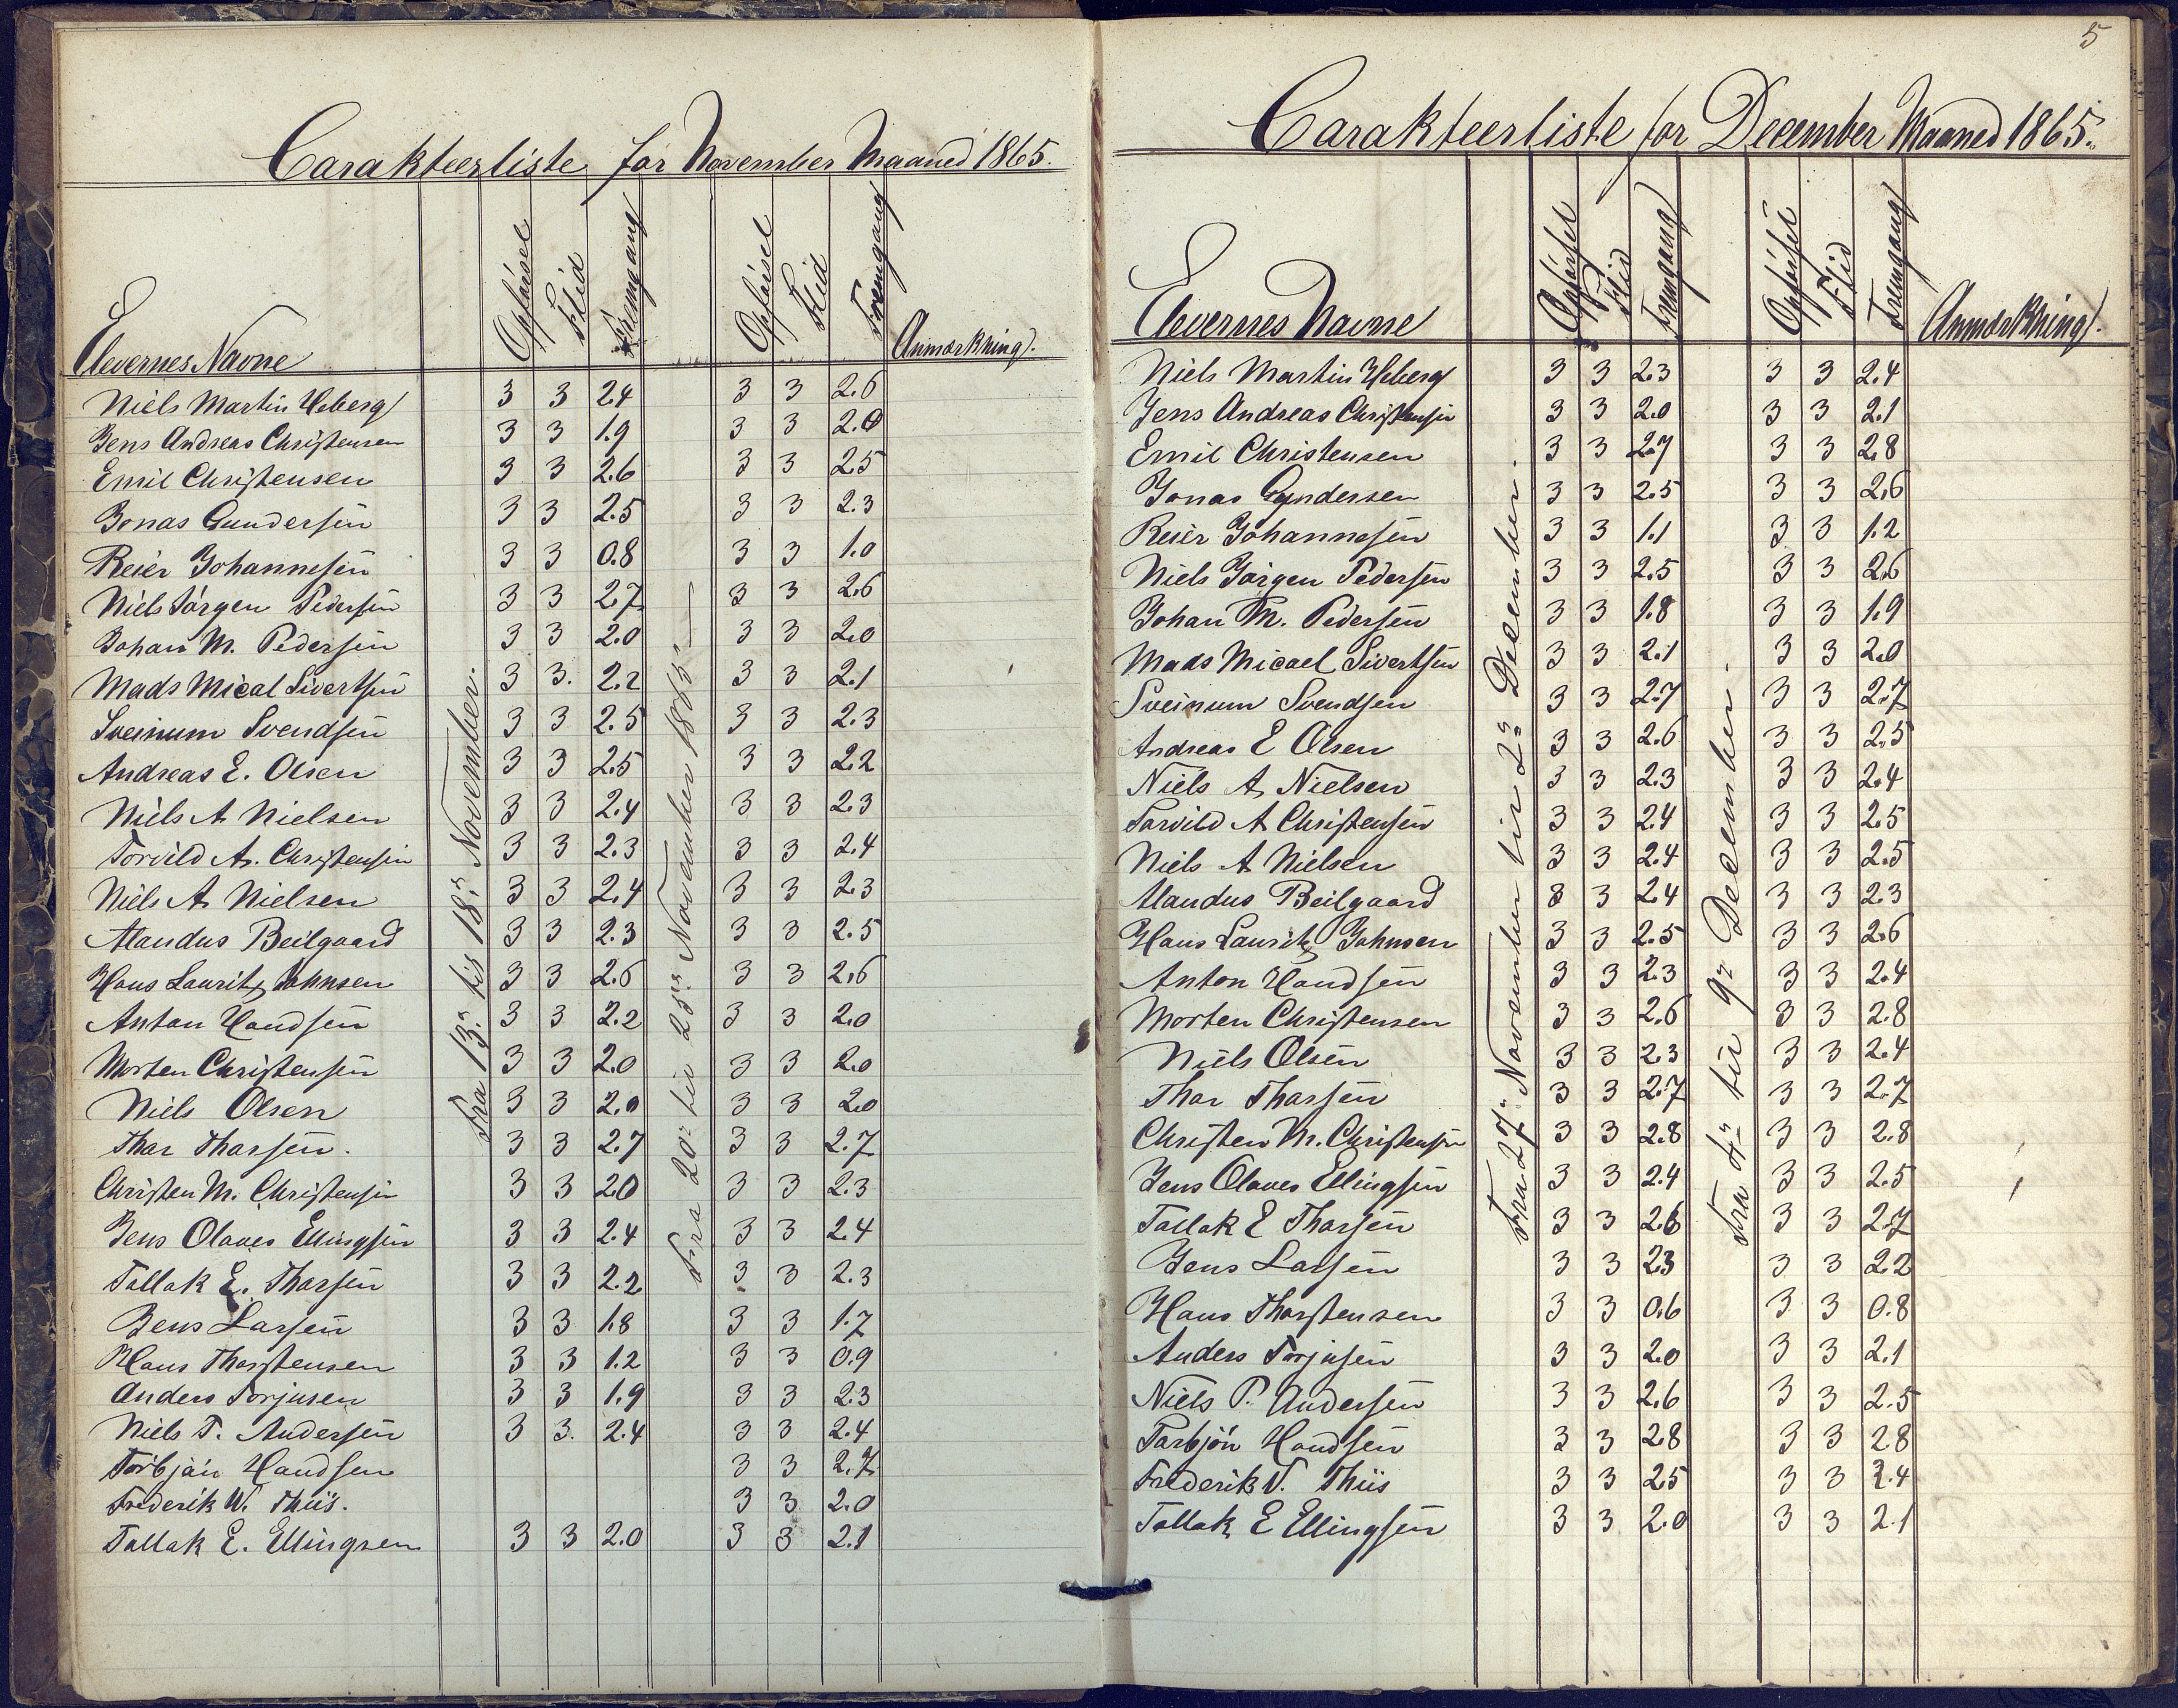 Carakteerliste for November Maaned 1865.
Elevernes Navne Opførsel Flid Fremgang Opførsel Flid Fremgang Anmærkning.
Fra 13de til 18de November.
Fra 20de til 25de November 1865
Niels Martin Heberg 3 3 2.4 3 3 2.6
Jens Andreas Christensen 3 3 1.9 3 3 2.0
Emil Christensen 3 3 2.6 3 3 2.5
Jonas Gundersen 3 3 2.5 3 3 2.3
Reier Johannesen 3 3 0.8 3 3 1.0
Niels Jørgen Pedersen 3 3 2.7 3 3 2.6
Johan M. Pedersen 3 3 2.0 3 3 2.0
Mads Mical Sivertsen 3 3. 2.2 3 3 2.1
Sveinum Svendsen 3 3 2.5 3 3 2.3
Andreas E. Olsen 3 3 2.5 3 3 2.2
Niels A Nielsen 3 3 2.4 3 3 2.3
Torvild A. Christensen 3 3 2.3 3 3 2.4
Niels A Nielsen 3 3 2.4 3 3 2.3
Alandus Beilgaard 3 3 2.3 3 3 2.5
Hans Lauritz Johnsen 3 3 2.6 3 3 2.6
Anton Handsen 3 3 2.2 3 3 2.0
Morten Christensen 3 3 2.0 3 3 2.0
Niels Olsen 3 3 2.0 3 3 2.0
Thor Thorsen. 3 3 2.7 3 3 2.7
Christen M. Christensen 3 3 2.0 3 3 2.3
Jens Olaves Ellingsen 3 3 2.4 3 3 2.4
Tallak E. Thorsen 3 3 2.2 3 3 2.3
Jens Larsen 3 3 1.8 3 3 1.7
Hans Thorstensen 3 3 1.2 3 3 0.9
Anders Torjusen 3 3 1.9 3 3 2.3
Niels T. Andersen 3 3. 2.4 3 3 2.4
Torbjøn Handsen 3 3 2.7
Frederik W. Thiis. 3 3 2.0
Tallak E. Ellingsen 3 3 2.0 3 3 2.1
5
Carakteerliste for December Maaned 1865.
Elevernes Navne Opførsel Flid Fremgang Opførsel Flid Fremgang Anmærkning.
Fra 27de November til 2de December.
Fra 4de til 9de December.
Niels Martin Heberg 3 3 2.3 3 3 2.4
Jens Andreas Christensen 3 3 2.0 3 3 2.1
Emil Christensen 3 3 2.7 3 3 2.8
Jonas Gundersen 3 3 2.5 3 3 2.6
Reier Johannesen 3 3 1.1 3 3 1.2
Niels Jørgen Pedersen 3 3 2.5 3 3 2.6
Johan M. Pedersen 3 3 1.8 3 3 1.9
Mads Micael Sivertsen 3 3 2.1 3 3 2.0
Sveinum Svendsen 3 3 2.7 3 3 2.7
Andreas E Olsen 3 3 2.6 3 3 2.5
Niels A Nielsen 3 3 2.3 3 3 2.4
Torvild A Christensen 3 3 2.4 3 3 2.5
Niels A Nielsen 3 3 2.4 3 3 2.5
Alandus Beilgaard 3 3 2.4 3 3 2.3
Hans Lauritz Johnsen 3 3 2.5 3 3 2.6
Anton Handsen 3 3 2.3 3 3 2.4
Morten Christensen 3 3 2.6 3 3 2.8
Niels Olsen 3 3 2.3 3 3 2.4
Thor Thorsen 3 3 2.7 3 3 2.7
Christen M. Christensen 3 3 2.8 3 3 2.8
Jens Olaves Ellingsen 3 3 2.4 3 3 2.5
Tallak E Thorsen 3 3 2.6 3 3 2.7
Jens Larsen 3 3 2.3 3 3 2.2
Hans Thorstensen 3 3 0.6 3 3 0.8
Anders Torjusen 3 3 2.0 3 3 2.1
Niels P. Andersen 3 3 2.6 3 3 2.5
Torbjøn Handsen 3 3 2.8 3 3 2.8
Frederik V. Thiis 3 3 2.5 3 3 2.4
Tallak E Ellingsen 3 3 2.0 3 3 2.1